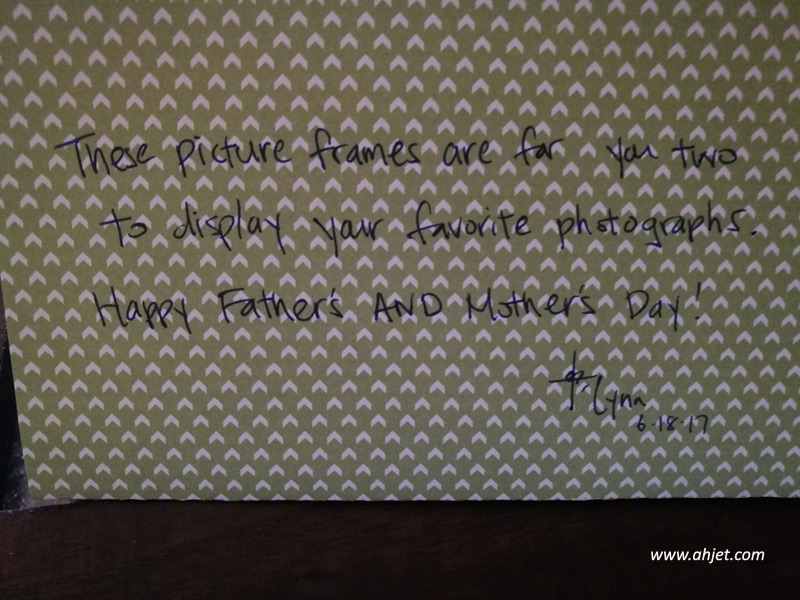 These picture frames are for you two
to display your favorite photographs.
Happy Father's AND Mother's Day!
Lynn
6.18.17
www.ahjet.com